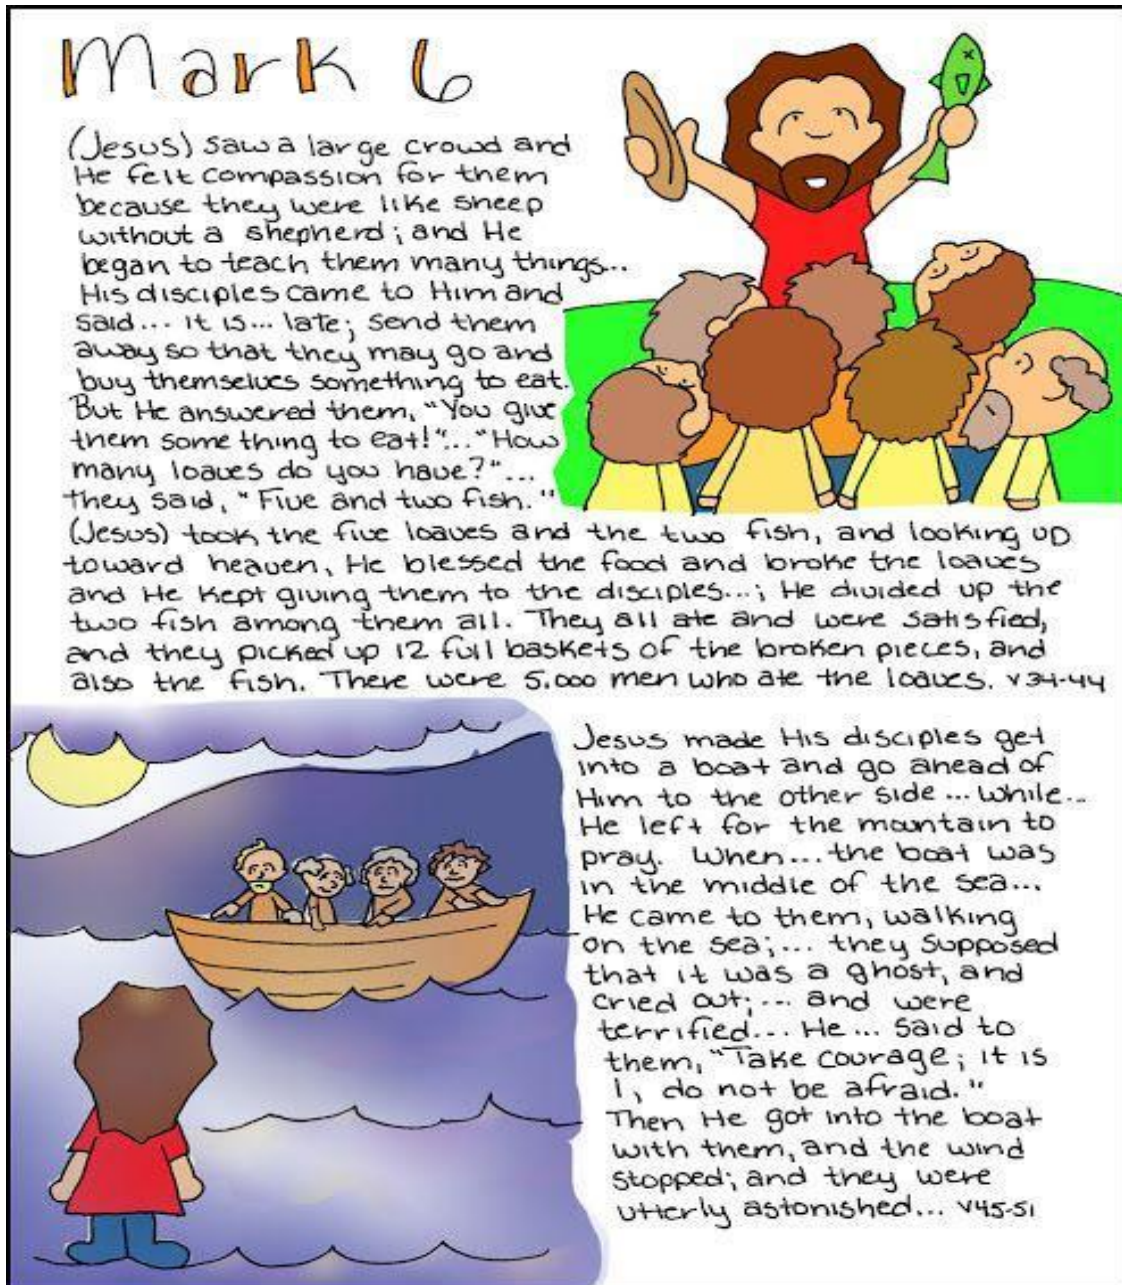 Mark 6
(Jesus) saw a large crowd and
He felt compassion for them
because they were like sheep
without a shepherd; and He
began to teach them many things...
His disciples came to Him and
said... it is... late; send them
away so that they may go and
buy themselves something to eat.
But He answered them, "You give
them some thing to eat!"..."How
many loaves do you have?"...
they said, "Five and two fish."
(Jesus) took the five loaves and the two fish, and looking up
toward heaven, He blessed the food and broke the loaves
and He kept giving them to the disciples...; He divided up the
two fish among them all. They all ate and were satisfied,
and they picked up 12 full baskets of the broken pieces, and
also the fish. There were 5.000 men who ate the loaves. v34-44
Jesus made His disciples get
into a boat and go ahead of
Him to the other side... while...
He left for the mountain to
pray. When... the boat was
in the middle of the sea...
He came to them, walking
on the sea;... they supposed
that it was a ghost, and
cried out;... and were
terrified... He... said to
them, "Take courage; it is
I, do not be afraid."
Then He got into the boat
with them, and the wind
stopped; and they were
utterly astonished... v45-51